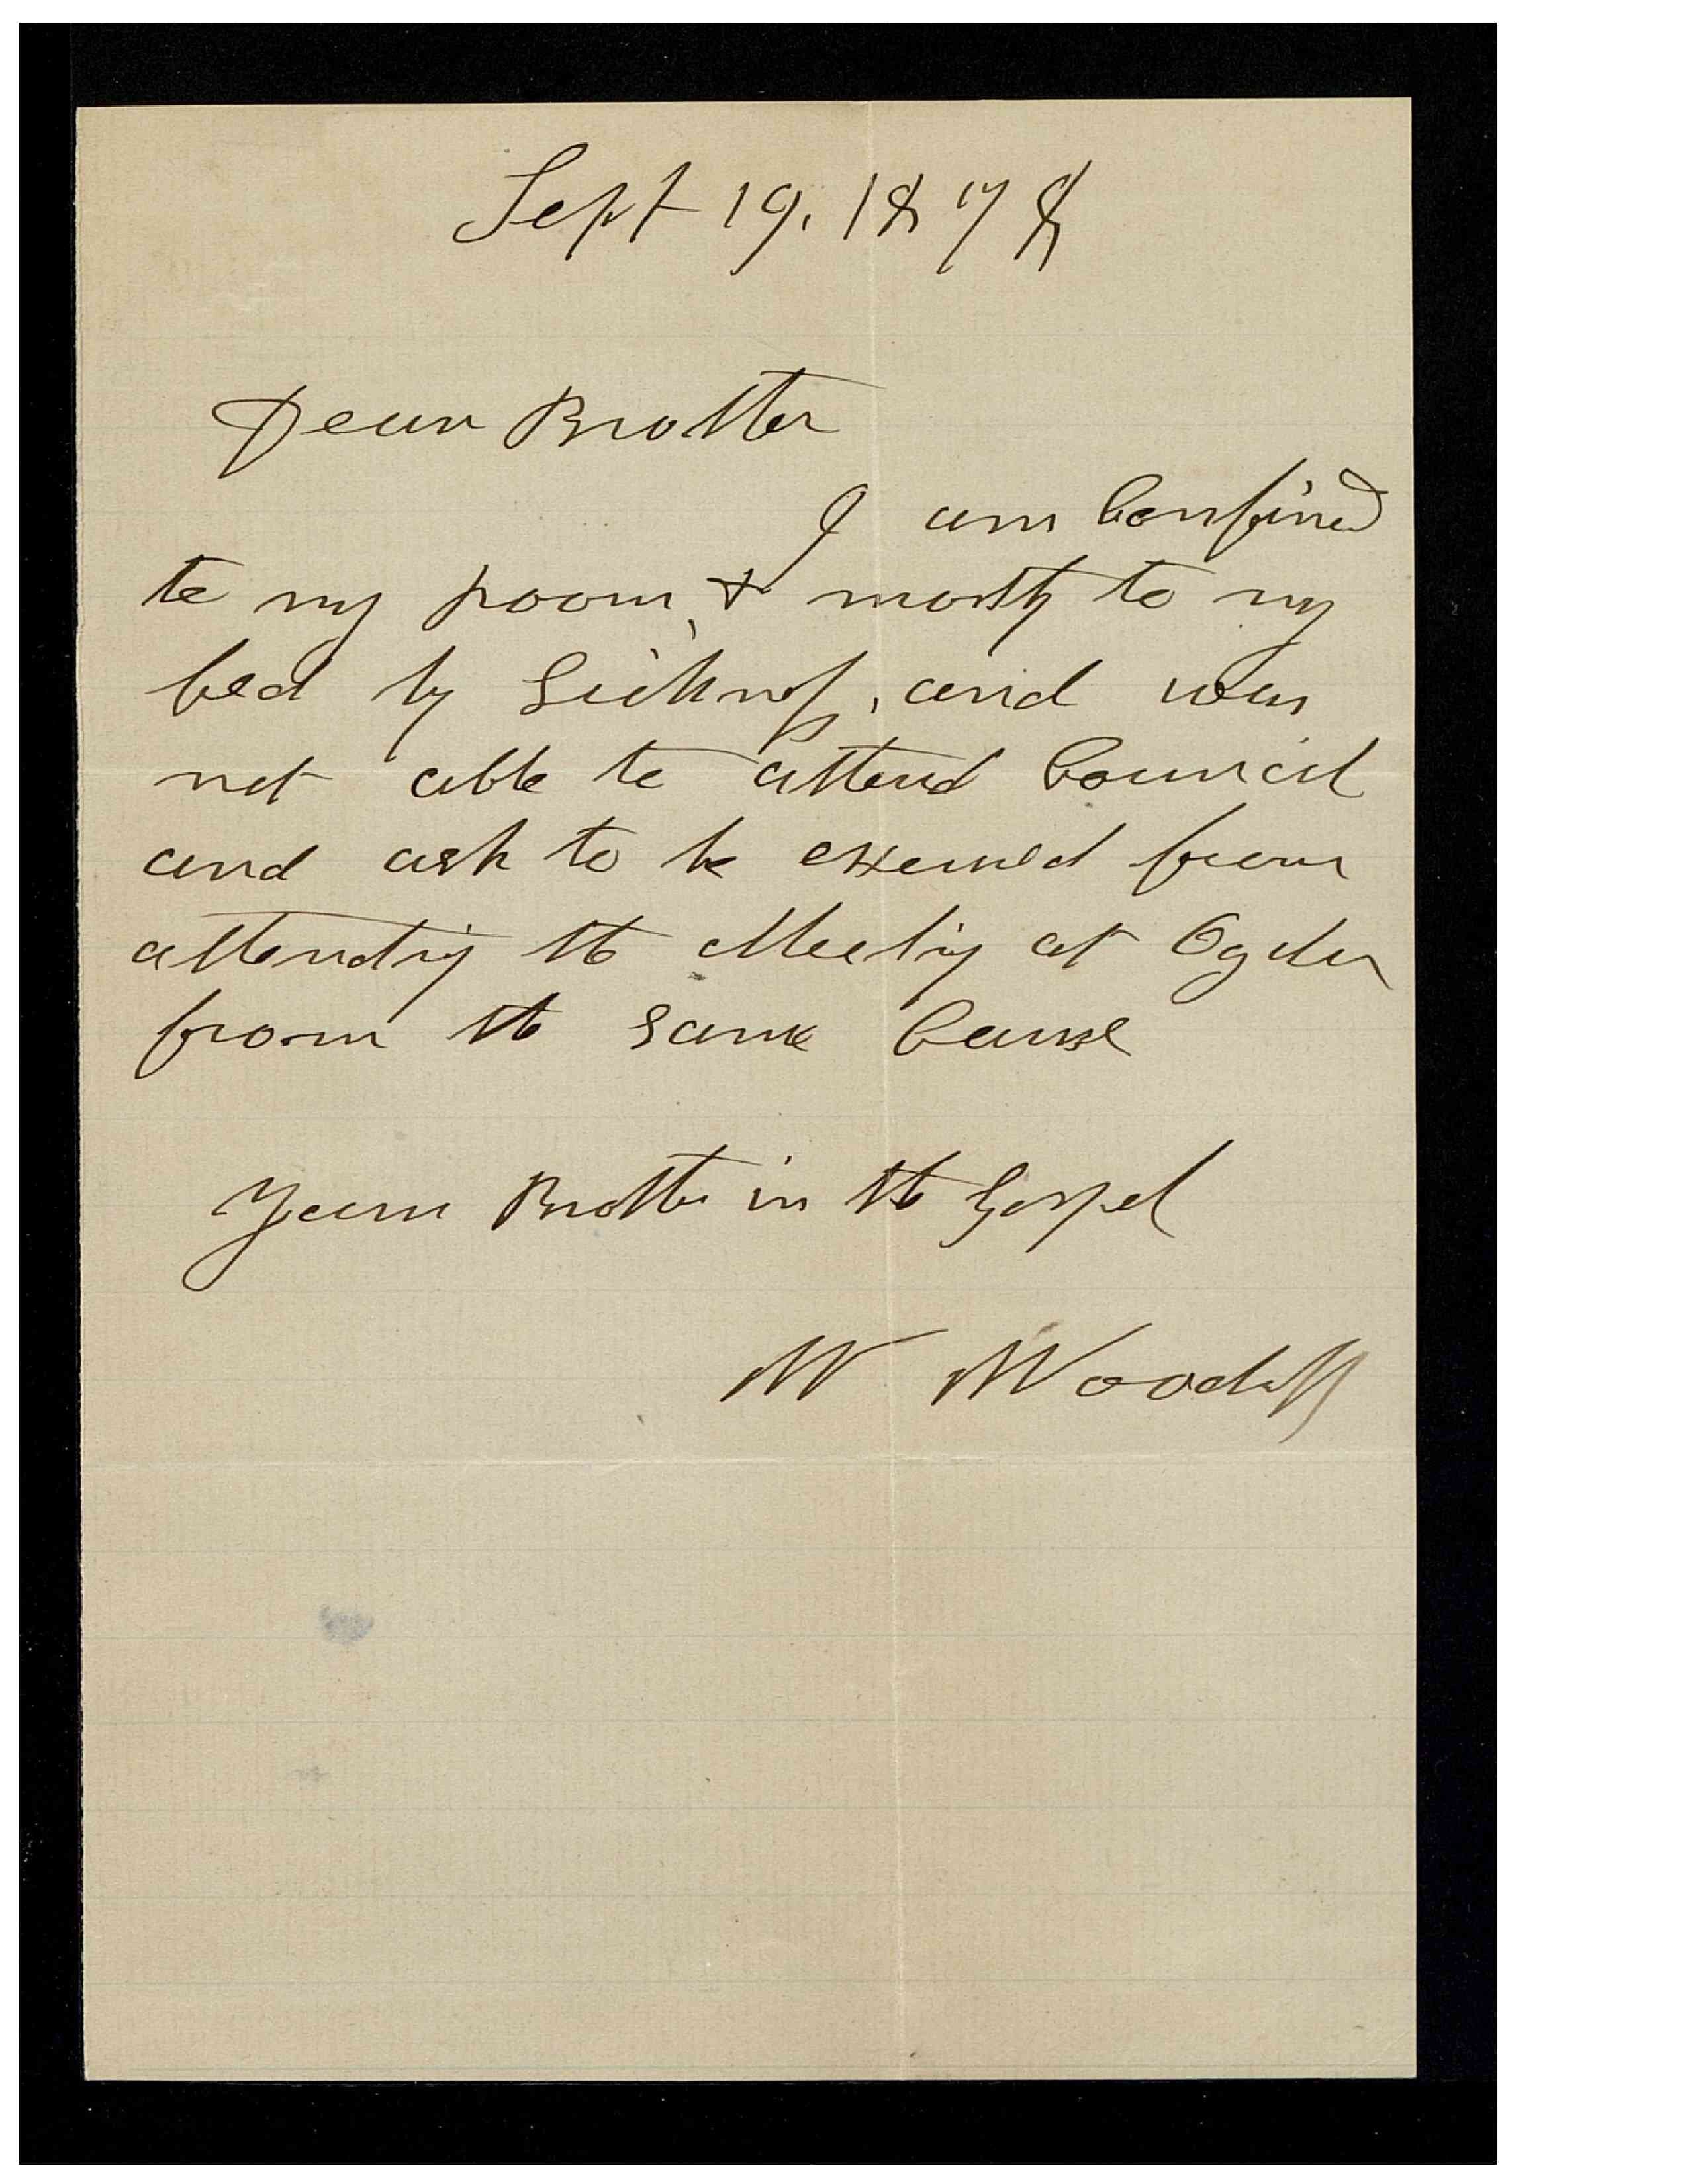 Sept 19. 1878
Dear Brother
I am Confined
to my room, & mostly to my
bed by Sickness, and was
not able to attend Council
and ask to be excused from
attending the Meeting at Ogden
from the same Cause
Your Brother in the Gospel
W Woodruff